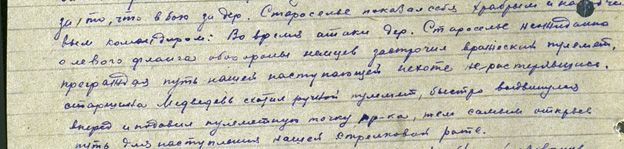 за то, что в бою за дер. Староселье показал себя храбрым и находчи
вым командиром. Во время атаки дер. Староселье неожиданно
с левого фланга обороны немцев застрочил вражеский пулемет,
преграждая путь нашей наступающей пехоте. Не растерявшись,
старшина Медведев схватил ручной пулемет, быстро выдвинулся
вперед и подавил пулеметную точку пр-ка, тем самым открыв
путь для наступления нашей стрелковой роте.